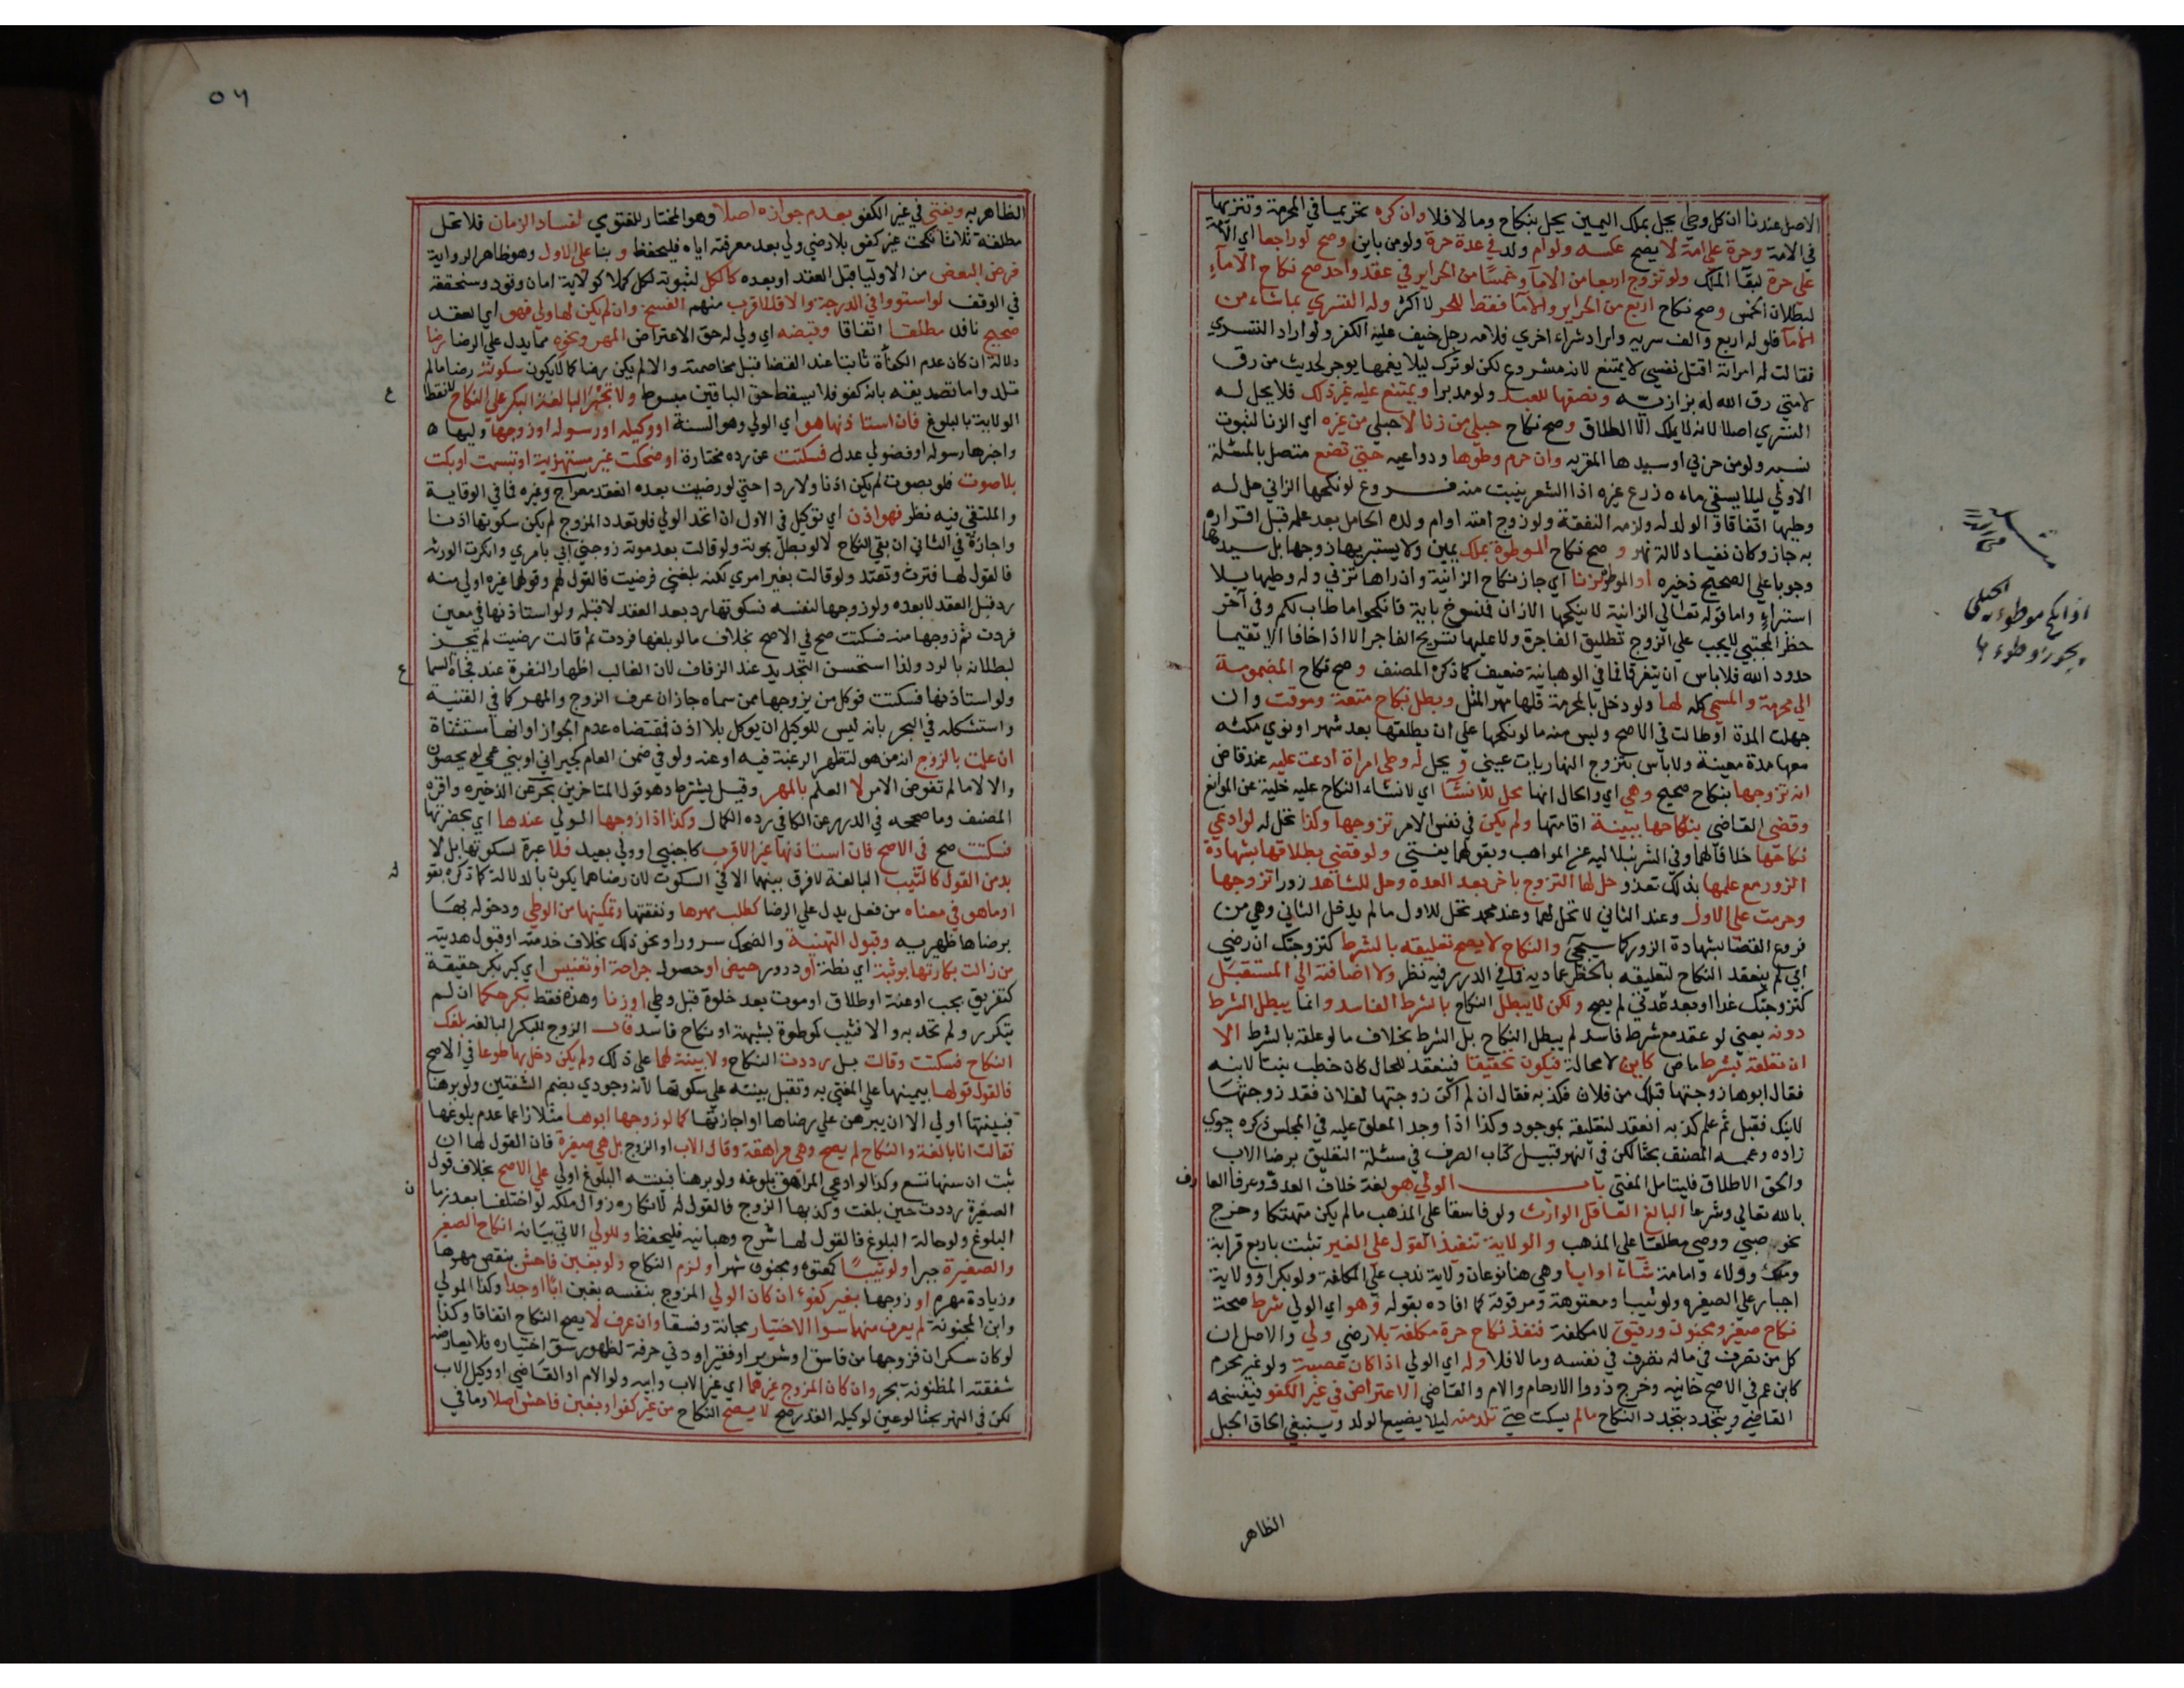 الاصل عندنا ان كل وطي يحل بملك اليمين يحل بنكاح ومالا فلا وان كره تحريما في المحرمة وتنزيها
في الامة وحرة على امة لا يصح عكسه ولو ام ولد في عدة حرة ولو من باين وصح لو راجعا اي الامة
على حرة لبقا الملك ولو تزوج اربعا من الاما وخمسا من الحراير في عقد واحد صح نكاح الاماء
لبطلان الخمس وصح نكاح اربع من الحراير والاما فقط للحر لا اكثر وله التسري بما شاء من
الاما فلو له اربع والف سريه واراد شراء اخري فلامه رجل خيف عليه الكفر ولو اراد التسري
فقالت له امراته اقتل نفسي لا يمتنع لانه مشروع لكن لو ترك ليلا يغمها يوجر لحديث من رق
لامتي رق الله له بزازية ونصفها للعبد ولو مدبرا ويمتنع عليه غير ذلك فلا يحل له
التسري اصلا لانه لا يملك الا الطلاق وصح نكاح حبلي من زنا لا حبلي من غيره اي الزنا لثبوت
نسبه ولو من حربي او سيدها المقربه وان حرم وطوها ودواعيه حتي تضع متصل بالمسئلة
الاولي ليلا يسقي ماءه زرع غيره اذا الشعر ينبت منه فروع لو نكحها الزاني حل له
وطيها اتفاقا والولد له ولزمه النفقة ولو زوج امته او ام ولده الحامل بعد علمه قبل اقراره
به جاز وكان نفيا دلالة نهر و صح نكاح الموطوة بملك يمين ولا يستبريها زوجها بل سيدها
وجوبا علي الصحيح ذخيره او الموطوة بزنا اي جاز نكاح الزانية وان راها تزني وله وطيها بلا
استبراء واما قوله تعالي الزانية لا ينكحها الا زان فمنسوخ باية فانكحوا ما طاب لكم وفي آخر
حظر المجتبي لا يجب علي الزوج تطليق الفاجرة ولا عليها تسريح الفاجر الا اذا خافا الا يقيما
حدود الله فلا باس ان يتفرقا فما في الوهبانية ضعيف كما ذكره المصنف و صح نكاح المضمومة
الي محرمة و المسمي كله لها ولو دخل بالمحرمة فلها مهر المثل وبطل نكاح متعة وموقت وان
جهلت المدة او طالت في الاصح وليس منه ما لو نكحها علي ان يطلقها بعد شهر او نوي مكثه
معها مدة معينة ولا باس بتزوج النهاريات عيني و يحل له وطي امراة ادعت عليه عند قاض
انه تزوجها بنكاح صحيح وهي اي والحال انها محل للانشا اي لانشاء النكاح عليه خلية عن الموانع
وقضي القاضي بنكاحها ببينة اقامتها ولم يكن في نفس الامر تزوجها وكذا تحل له لو ادعي
نكاحها خلافا لهما وفي الشرنبلاليه عن المواهب وبقولهما يفتي ولو قضي بطلاقها بشهادة
الزور مع علمها بذلك نفذ وحل لها التزوج باخر بعد العده وحل للشاهد زورا تزوجها
وحرمت علي الاول وعند الثاني لا تحل لهما وعند محمد تحل للاول مالم يدخل الثاني وهي من
فروع القضا بشهادة الزور كما سيجي والنكاح لا يصح تعليقه بالشرط كتزوجتك ان رضي
ابي لم ينعقد النكاح لتعليقه بالخطر عماديه فما في الدرر فيه نظر ولا اضافته الي المستقبل
كتزوجتك غدا او بعد غد لم يصح ولكن لا يبطل النكاح بالشرط الفاسد وانما يبطل الشرط
دونه يعني لو عقد مع شرط فاسد لم يبطل النكاح بل الشرط بخلاف ما لو علقه بالشرط الا
ان تعلقه بشرط ماض كاين لا محالة فيكون تحقيقا فينعقد للحال كان خطب بنتا لابنه
فقال ابوها زوجتها قبلك من فلان فكذبه فقال ان لم اكن زوجتها لفلان فقد زوجتها
لابنك فقبل ثم علم كذبه انعقد لتعليقه بموجود وكذا اذا وجد المعلق عليه في المجلس ذكره جوي
زاده وعممه المصنف بحثا لكن في النهر قبيل كتاب الصرف في مسئلة التعليق برضا الاب
والحق الاطلاق فليتامل المفتي باب الولي هو لغة خلاف العدو وعرفا العارف
بالله تعالي وشرعا البالغ العاقل الوارث ولو فاسقا علي المذهب مالم يكن متهتكا وخرج
نحو صبي ووصي مطلقا علي المذهب والولاية تنفيذ القول علي الغير تثبت باربع قرابة
وملك وولاء وامامة شاء او ابا وهي هنا نوعان ولاية ندب علي المكلفة ولو بكرا وولاية
اجبار علي الصغيره ولو ثيبا ومعتوهة ومرقوقة كما افاده بقوله وهو اي الولي شرط صحة
نكاح صغير ومجنون ورقيق لا مكلفة فنفذ نكاح حرة مكلفة بلا رضي ولي والاصل ان
كل من تصرف في ماله تصرف في نفسه ومالا فلا وله اي الولي اذا كان عصبة ولو غير محرم
كابن عم في الاصح خانيه وخرج ذووا الارحام والام والقاضي الاعتراض في غير الكفو فيفسخه
القاضي ويتجدد بتجدد النكاح مالم يسكت حتي تلد منه ليلا يضيع الولد وينبغي الحاق الحبل
الظاهر
اذا نكح موطوءته الحبلى
يجوز وطوءها
٥٦
الظاهر به ويفتي في غير الكفو بعدم جوازه اصلا وهو المختار للفتوي لفساد الزمان فلا تحل
مطلقة ثلاثا نكحت غير كفو بلا رضي ولي بعد معرفته اياه فليحفظ و بنا علي الاول وهو ظاهر الرواية
فرضي البعض من الاوليا قبل العقد او بعده كالكل لثبوته لكل كملا كولاية امان وقود وسنحققه
في الوقف لو استووا في الدرجة والا فللاقرب منهم الفسخ وان لم يكن لها ولي فهو اي العقد
صحيح نافذ مطلقا اتفاقا وقبضه اي ولي له حق الاعتراض المهر ونحوه مما يدل علي الرضا رضا
دلالة ان كان عدم الكفأة ثابتا عند القضا قبل مخاصمته والا لم يكن رضا كما لا يكون سكوته رضا مالم
تلد واما تصديقه بانه كفو فلا يسقط حق الباقين مبسوط ولا تجبر البالغة البكر علي النكاح لانقطا
ع
الولاية بالبلوغ فان استاذنها هو اي الولي وهو السنة او وكيله او رسوله او زوجها وليها
واخبرها رسوله او فضولي عدل فسكتت عن رده مختارة او ضحكت غير مستهزية او تبسمت او بكت
بلا صوت فلو بصوت لم يكن اذنا ولا ردا حتي لو رضيت بعده انعقد معراج وغيره فما في الوقاية
والملتقي فيه نظر فهو اذن اي توكيل في الاول ان اتحد الولي فلو تعدد المزوج لم يكن سكوتها اذنا
واجازة في الثاني ان بقي النكاح لا لو بطل بموته ولو قالت بعد موته زوجني ابي بامري وانكرت الورثه
فالقول لها فترث وتعتد ولو قالت بغير امري لكنه بلغني فرضيت فالقول لهم وقولها غيره اولي منه
رد قبل العقد لا بعده ولو زوجها لنفسه فسكوتها رد بعد العقد لا قبله ولو استاذنها في معين
فردت ثم زوجها منه فسكتت صح في الاصح بخلاف ما لو بلغها فردت ثم قالت رضيت لم يجز
لبطلانه بالرد ولذا استحسن التجديد عند الزفاف لان الغالب اظهار النفرة عند فجاة السما
ع
ولو استاذنها فسكتت فوكل من يزوجها ممن سماه جاز ان عرف الزوج والمهر كما في القنية
واستشكله في البحر بانه ليس للوكيل ان يوكل بلا اذن فمقتضاه عدم الجواز او انها مستثناة
ان علمت بالزوج انه من هو لتظهر الرغبة فيه او عنه ولو في ضمن العام كجيراني او بني عمي لو يحصون
والا لا مالم تفوض الامر لا العلم بالمهر وقيل يشترط وهو قول المتاخرين بحر عن الذخيره واقره
المصنف وما صححه في الدرر عن الكافي رده الكمال وكذا اذا زوجها الولي عندها اي بحضرتها
فسكتت صح في الاصح فان استاذنها غير الاقرب كاجنبي او ولي بعيد فلا عبرة لسكوتها بل لا
بد من القول كالثيب البالغة لا فرق بينهما الا في السكوت لان رضاهما يكون بالدلالة كما ذكره بقو
او ما هو في معناه من فعل يدل علي الرضا كطلب مهرها ونفقتها وتمكينها من الوطي ودخوله بها
برضاها ظهيريه وقبول التهنية والضحك سرورا ونحو ذلك بخلاف خدمته او قبول هديته
من زالت بكارتها بوثبة اي نطة او درور حيض او حصول جراحة او تعنيس اي كبر بكر حقيقة
كتفريق بجب او عنة او طلاق او موت بعد خلوة قبل وطي او زنا وهذه فقط بكر حكما ان لم
يتكرر ولم تحد به والا فثيب كموطوة بشبهة او نكاح فاسد قال الزوج للبكر البالغة بلغك
النكاح فسكتت وقالت بل رددت النكاح ولا بينة لهما علي ذلك ولم يكن دخل بها طوعا في الاصح
فالقول قولها بيمينها علي المفتي به وتقبل بينته علي سكوتها لانه وجودي بضم الشفتين ولو برهنا
فبينتها اولي الا ان يبرهن علي رضاها او اجازتها كما لو زوجها ابوها مثلا زاعما عدم بلوغها
فقالت انا بالغة والنكاح لم يصح وهي مراهقة وقال الاب او الزوج بل هي صغيرة فان القول لها ان
ثبت ان سنها تسع وكذا لو ادعي المراهق بلوغه ولو برهنا فبينته البلوغ اولي علي الاصح بخلاف قول
الصغيرة رددت حين بلغت وكذبها الزوج فالقول له لانكاره زوال ملكه لو اختلفا بعد زما
ن
البلوغ ولو حالة البلوغ فالقول لها شرح وهبانيه فليحفظ وللولي الاتي بيانه انكاح الصغير
والصغيرة جبرا ولو ثيبا كمعتوه ومجنون شهرا ولزم النكاح ولو بغبن فاحش بنقص مهرها
وزيادة مهره او زوجها بغير كفوء ان كان الولي المزوج بنفسه بغبن ابا او جدا وكذا المولي
وابن المجنونة لم يعرف منهما سوا الاختيار مجانة وفسقا وان عرف لا يصح النكاح اتفاقا وكذا
لو كان سكران فزوجها من فاسق او شرير او فقير او دني حرفة لظهور سوٓ اختياره فلا يعارضه
شفقته المظنونة بحر وان كان المزوج غيرهما اي غير الاب وابيه ولو الام او القاضي او وكيل الاب
لكن في النهر بحثا لو عين لوكيله القدر صح لا يصح النكاح من غير كفو او بغبن فاحش اصلا وما في